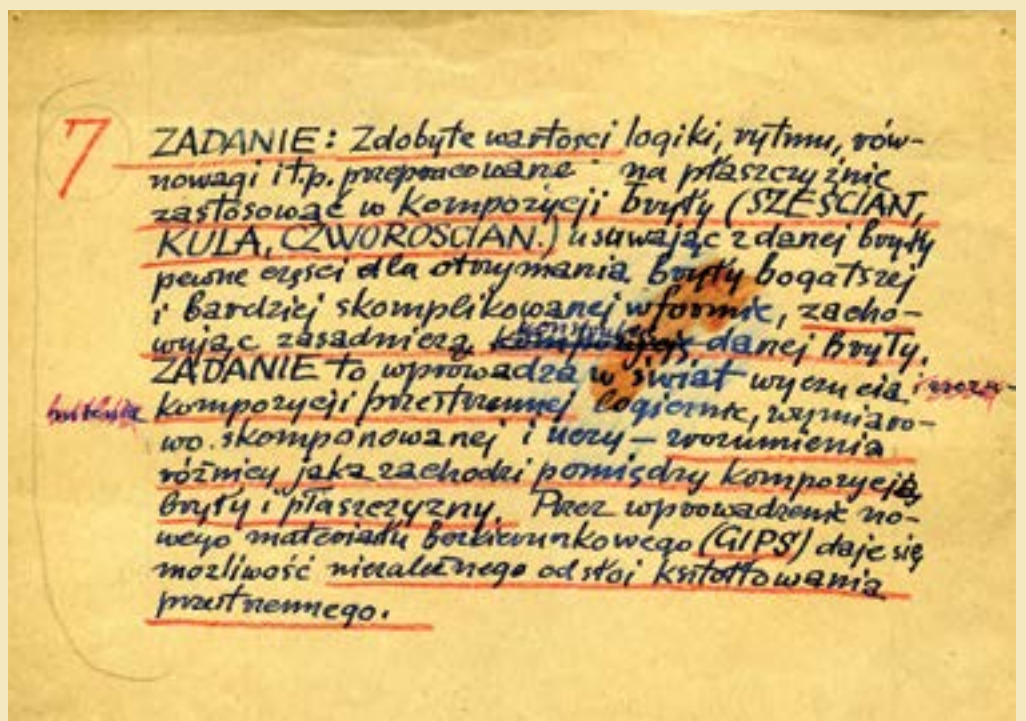 7
ZADANIE: Zdobyte wartości logiki, rytmu, rów-
nowagi i t.p. przepracowane na płaszczyźnie
zastosować w kompozycji bryły (SZEŚCIAN,
KULA, CZWOROŚCIAN.) usuwając z danej bryły
pewne części dla otrzymania bryły bogatszej
i bardziej skomplikowanej w formie, zacho-
wując zasadniczą danej bryły.
ZADANIE to wprowadza w świat wyczucia i
kompozycji przestrzennej logicznie, wymiaro-
wo skomponowanej i uczy – zrozumienia
różnicy jaka zachodzi pomiędzy kompozycją
bryły i płaszczyzny. Przez wprowadzenie no-
wego materiału bezkierunkowego (GIPS) daje się
możliwość niezależnego od słoi kształtowania
przestrzennego.